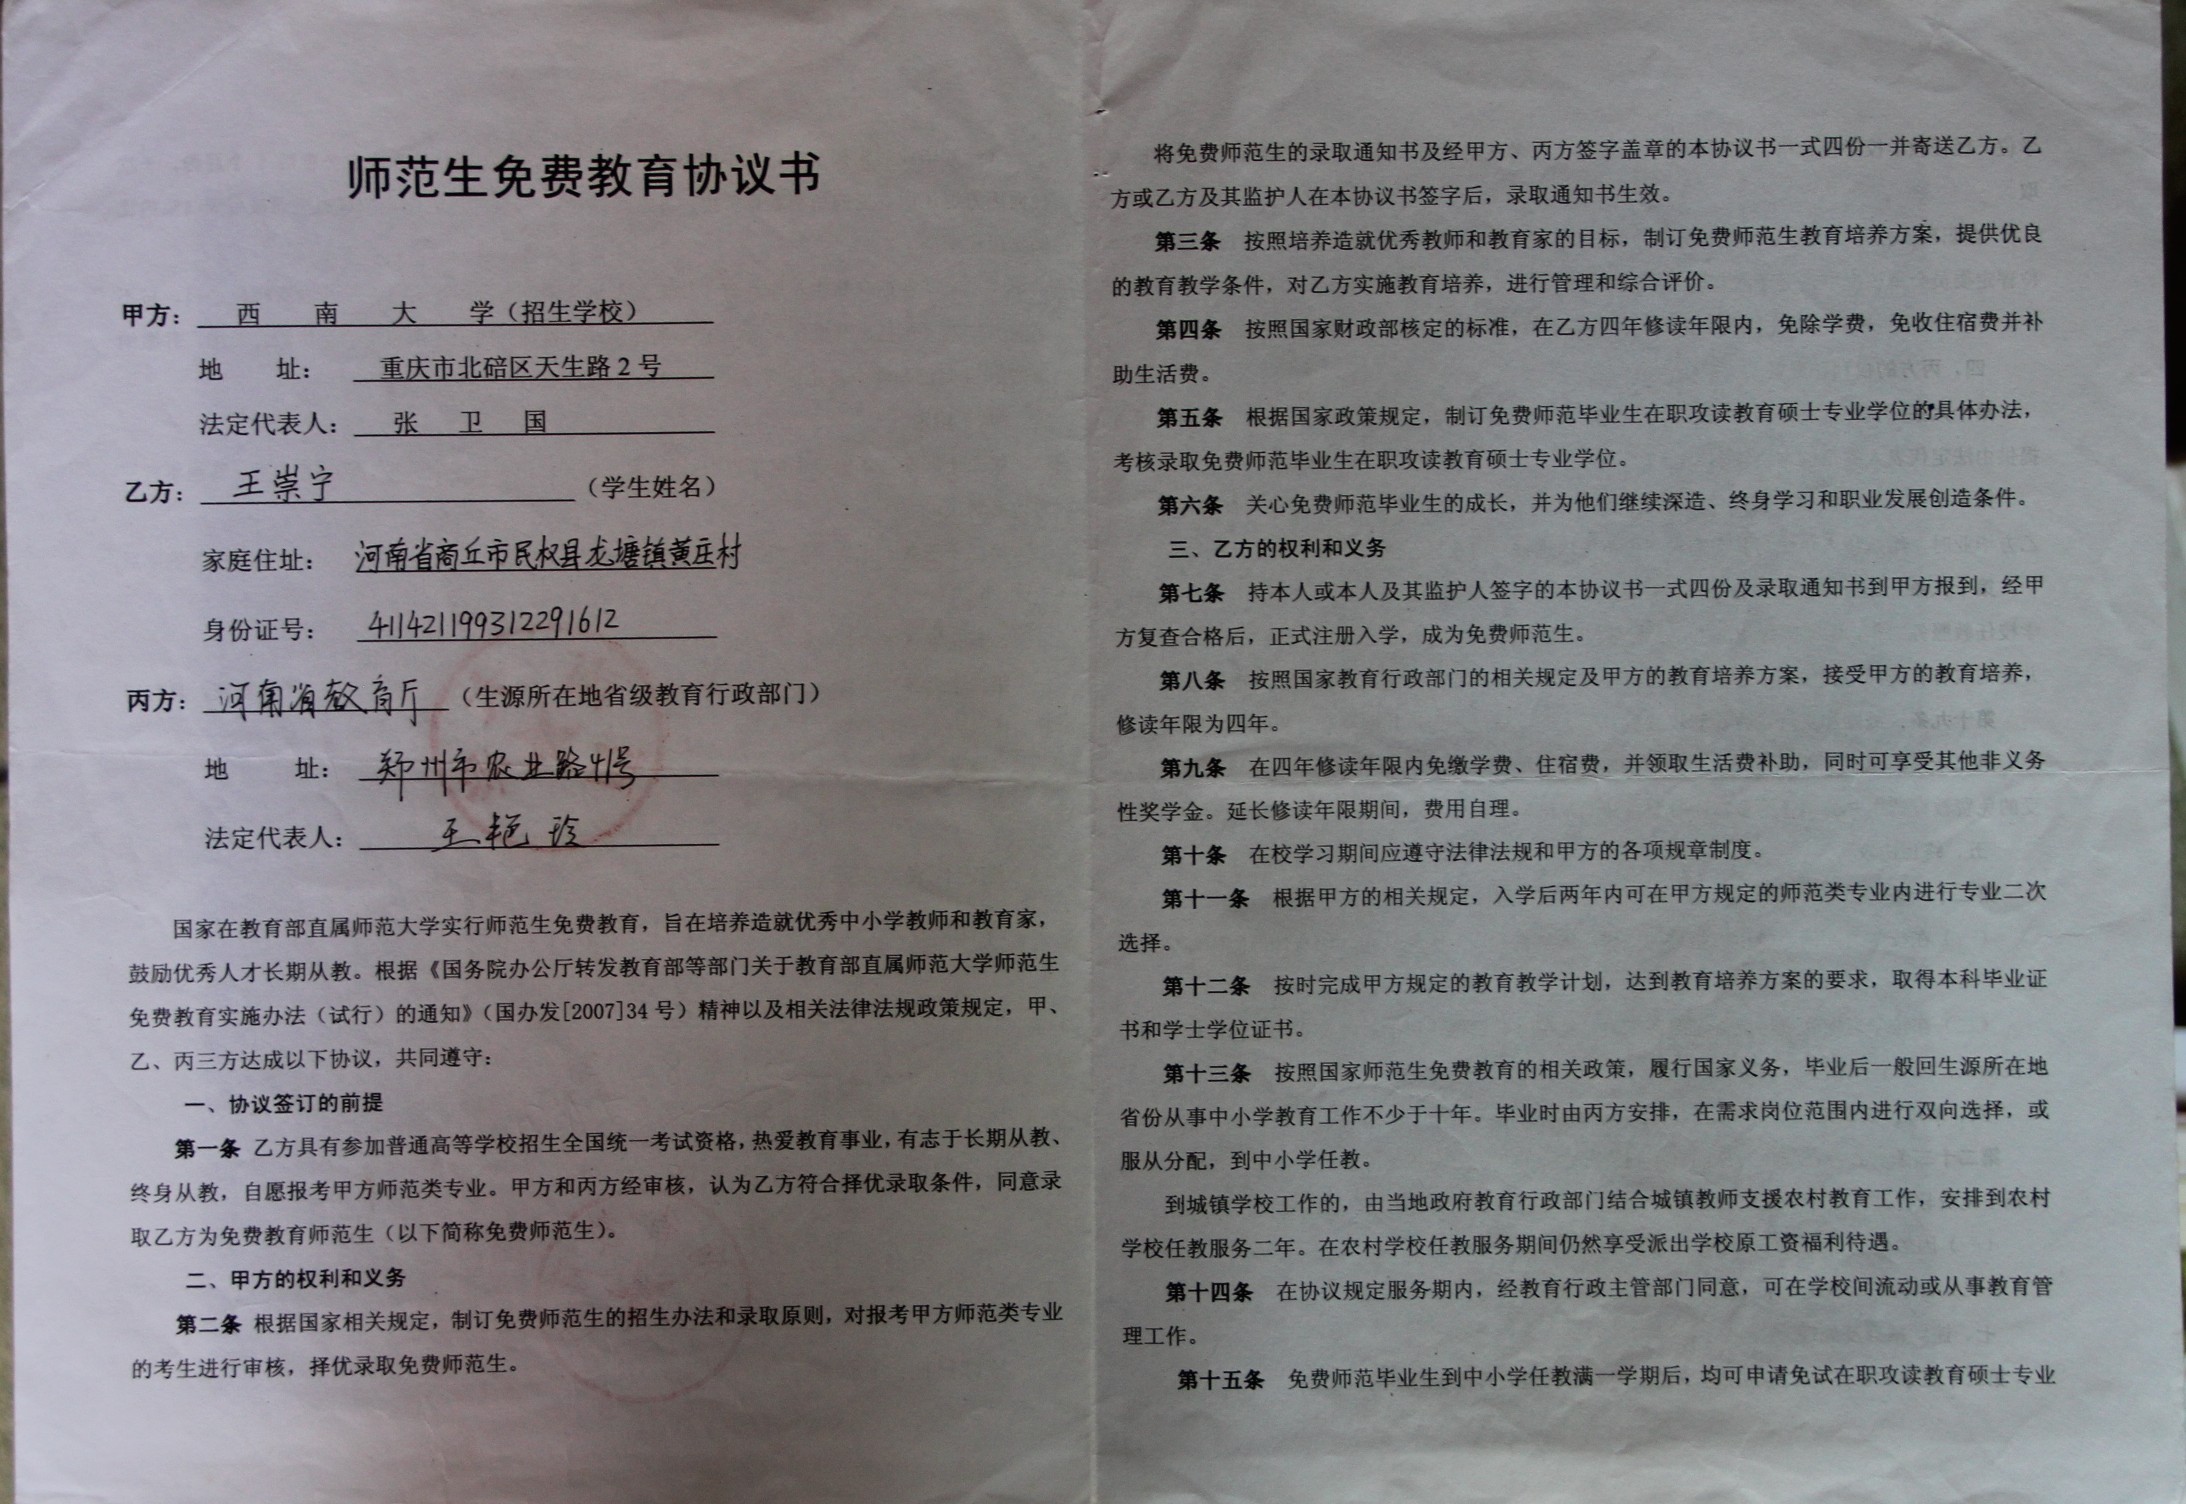 师范生免费教育协议书
甲方：西南大学（招生学校）
地址：重庆市北碚区天生路2号
法定代表人：张卫国
乙方：王崇宁（学生姓名）
家庭住址：河南省商丘市民权县龙塘镇黄庄村
身份证号：411421199312291612
丙方：河南省教育厅（生源所在地省级教育行政部门）
地址：郑州市农业路41号
法定代表人：王艳玲
国家在教育部直属师范大学实行师范生免费教育，旨在培养造就优秀中小学教师和教育家，
鼓励优秀人才长期从教。根据《国务院办公厅转发教育部等部门关于教育部直属师范大学师范生
免费教育实施办法（试行）的通知》（国办发[2007]34号）精神以及相关法律法规政策规定，甲、
乙、丙三方达成以下协议，共同遵守：
一、协议签订的前提
第一条 乙方具有参加普通高等学校招生全国统一考试资格，热爱教育事业，有志于长期从教、
终身从教，自愿报考甲方师范类专业。甲方和丙方经审核，认为乙方符合择优录取条件，同意录
取乙方为免费教育师范生（以下简称免费师范生）。
二、甲方的权利和义务
第二条 根据国家相关规定，制订免费师范生的招生办法和录取原则，对报考甲方师范类专业
的考生进行审核，择优录取免费师范生。
将免费师范生的录取通知书及经甲方、丙方签字盖章的本协议书一式四份一并寄送乙方。乙
方或乙方及其监护人在本协议书签字后，录取通知书生效。
第三条 按照培养造就优秀教师和教育家的目标，制订免费师范生教育培养方案，提供优良
的教育教学条件，对乙方实施教育培养，进行管理和综合评价。
第四条 按照国家财政部核定的标准，在乙方四年修读年限内，免除学费，免收住宿费并补
助生活费。
第五条 根据国家政策规定，制订免费师范毕业生在职攻读教育硕士专业学位的具体办法，
考核录取免费师范毕业生在职攻读教育硕士专业学位。
第六条 关心免费师范毕业生的成长，并为他们继续深造、终身学习和职业发展创造条件。
三、乙方的权利和义务
第七条 持本人或本人及其监护人签字的本协议书一式四份及录取通知书到甲方报到，经甲
方复查合格后，正式注册入学，成为免费师范生。
第八条 按照国家教育行政部门的相关规定及甲方的教育培养方案，接受甲方的教育培养，
修读年限为四年。
第九条 在四年修读年限内免缴学费、住宿费，并领取生活费补助，同时可享受其他非义务
性奖学金。延长修读年限期间，费用自理。
第十条 在校学习期间应遵守法律法规和甲方的各项规章制度。
第十一条 根据甲方的相关规定，入学后两年内可在甲方规定的师范类专业内进行专业二次
选择。
第十二条 按时完成甲方规定的教育教学计划，达到教育培养方案的要求，取得本科毕业证
书和学士学位证书。
第十三条 按照国家师范生免费教育的相关政策，履行国家义务，毕业后一般回生源所在地
省份从事中小学教育工作不少于十年。毕业时由丙方安排，在需求岗位范围内进行双向选择，或
服从分配，到中小学任教。
到城镇学校工作的，由当地政府教育行政部门结合城镇教师支援农村教育工作，安排到农村
学校任教服务二年。在农村学校任教服务期间仍然享受派出学校原工资福利待遇。
第十四条 在协议规定服务期内，经教育行政主管部门同意，可在学校间流动或从事教育管
理工作。
第十五条 免费师范毕业生到中小学任教满一学期后，均可申请免试在职攻读教育硕士专业